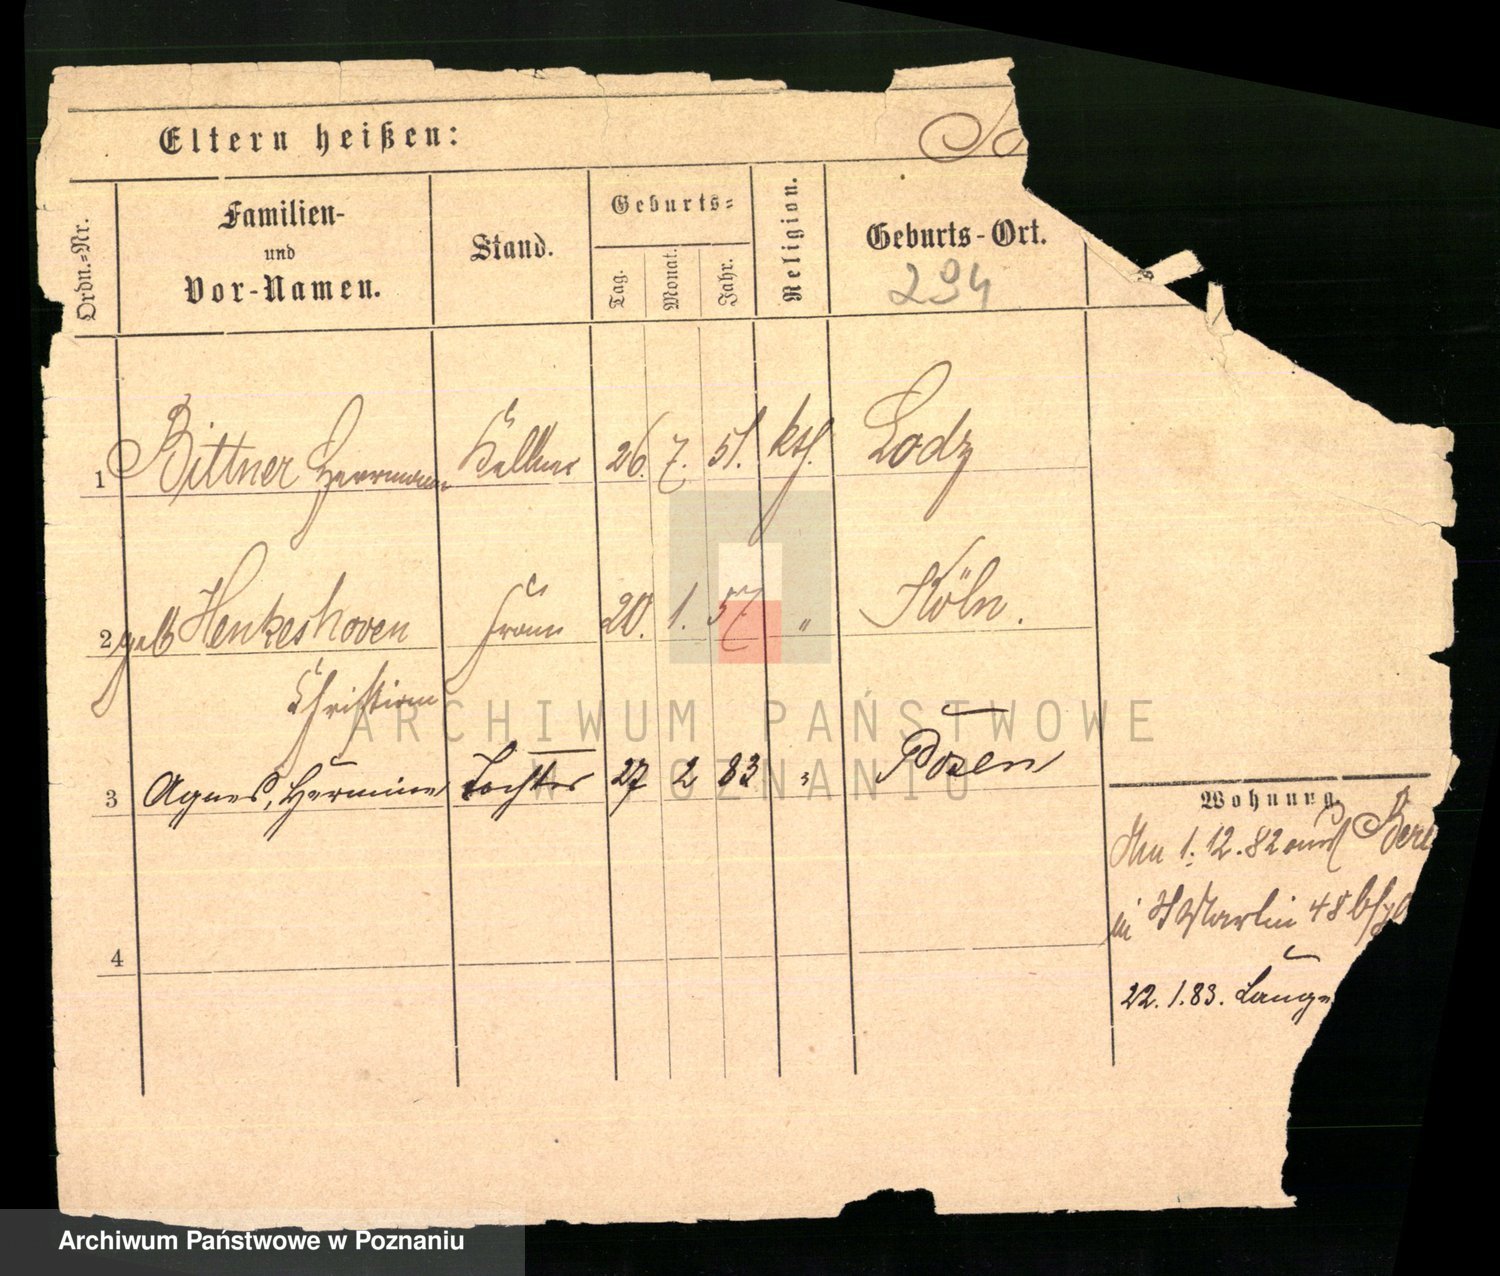 Eltern heißen:
Ordn.-Nr.
Familien-
und
Vor-Namen.
Stand.
Geburts-
Tag.
Monat.
Jahr.
Religion.
Geburts-Ort.
294
1 Bittner Herrmann Kellner 26. 7. 51. kth. Lodz
2 geb Henkeshoven Frau 20. 1. 57 " Köln.
Christine
3 Agnes, Hermine Tochter 27 2 83 " Posen
Wohnung.
Am 1. 12. 82 aus
in St Martin 48 bei
4
22. 1. 83. Lange
ARCHIWUM PAŃSTWOWE
W POZNANIU
Archiwum Państwowe w Poznaniu